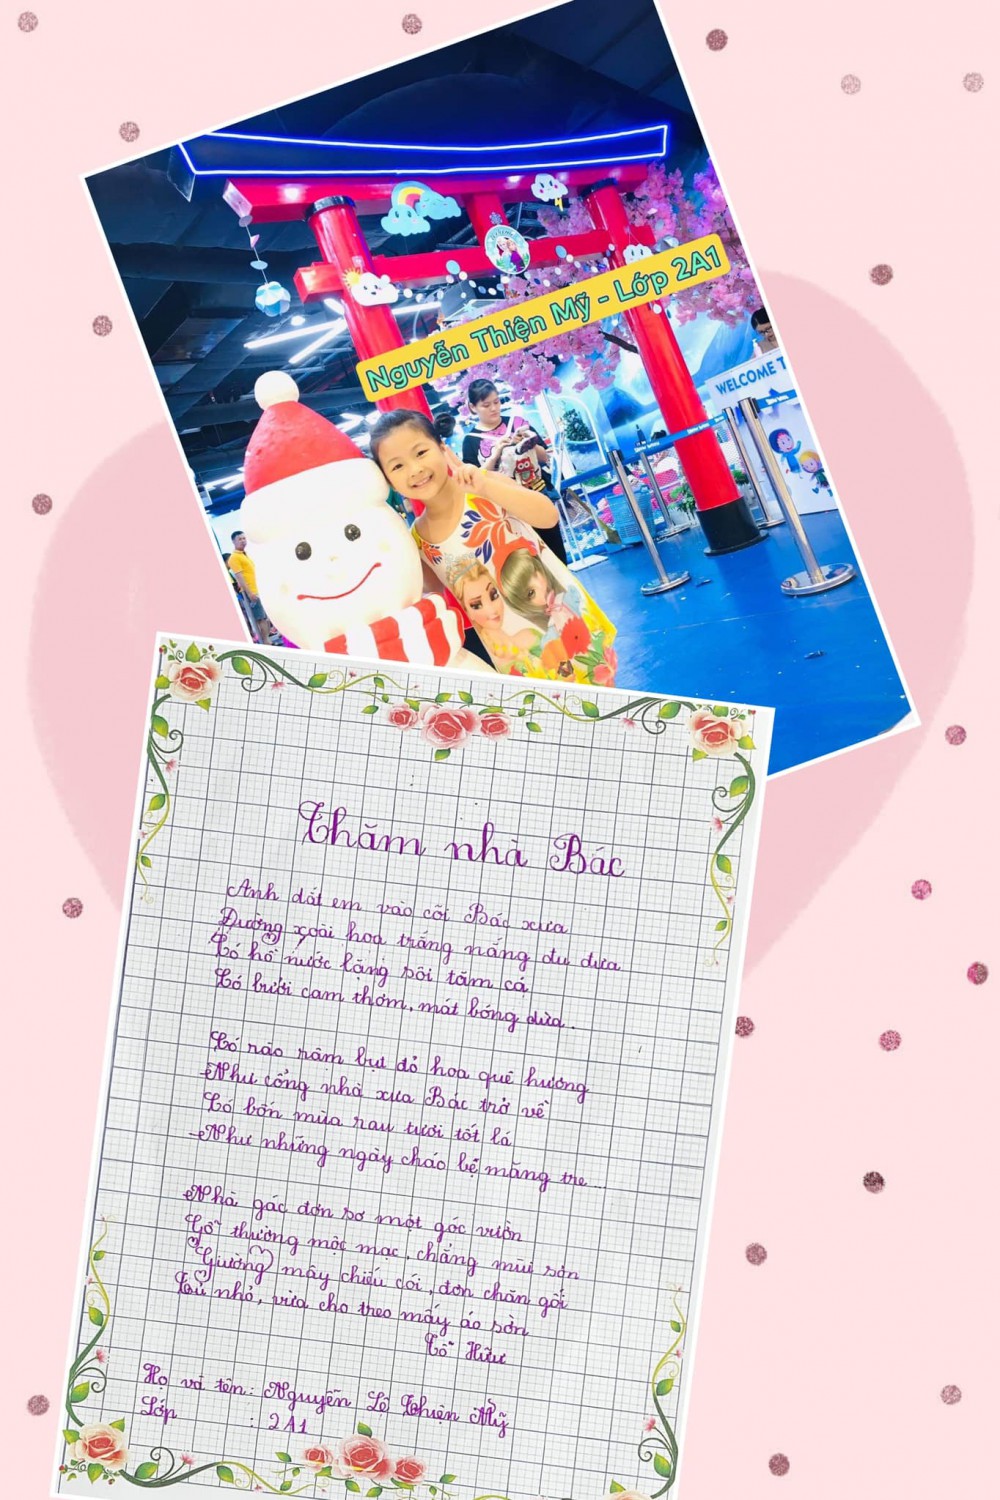 WELCOME T
Nguyễn Thiện Mỹ - Lớp 2A1
Thăm nhà Bác
Anh dắt em vào cõi Bác xưa
Đường xoài hoa trắng nắng đu đưa
Có hồ nước lặng sôi tăm cá
Có bưởi cam thơm, mát bóng dừa.
Có rào râm bụt đỏ hoa quê hương
Như cổng nhà xưa Bác trở về
Có bốn mùa rau tươi tốt lá
Như những ngày cháo bẹ măng tre...
Nhà gác đơn sơ một góc vườn
Gỗ thường mộc mạc, chẳng mùi sơn
Giường mây chiếu cói, đơn chăn gối
Tủ nhỏ, vừa cho treo mấy áo sờn
Tố Hữu
Họ và tên: Nguyễn Lê Thiện Mỹ
Lớp : 2A1